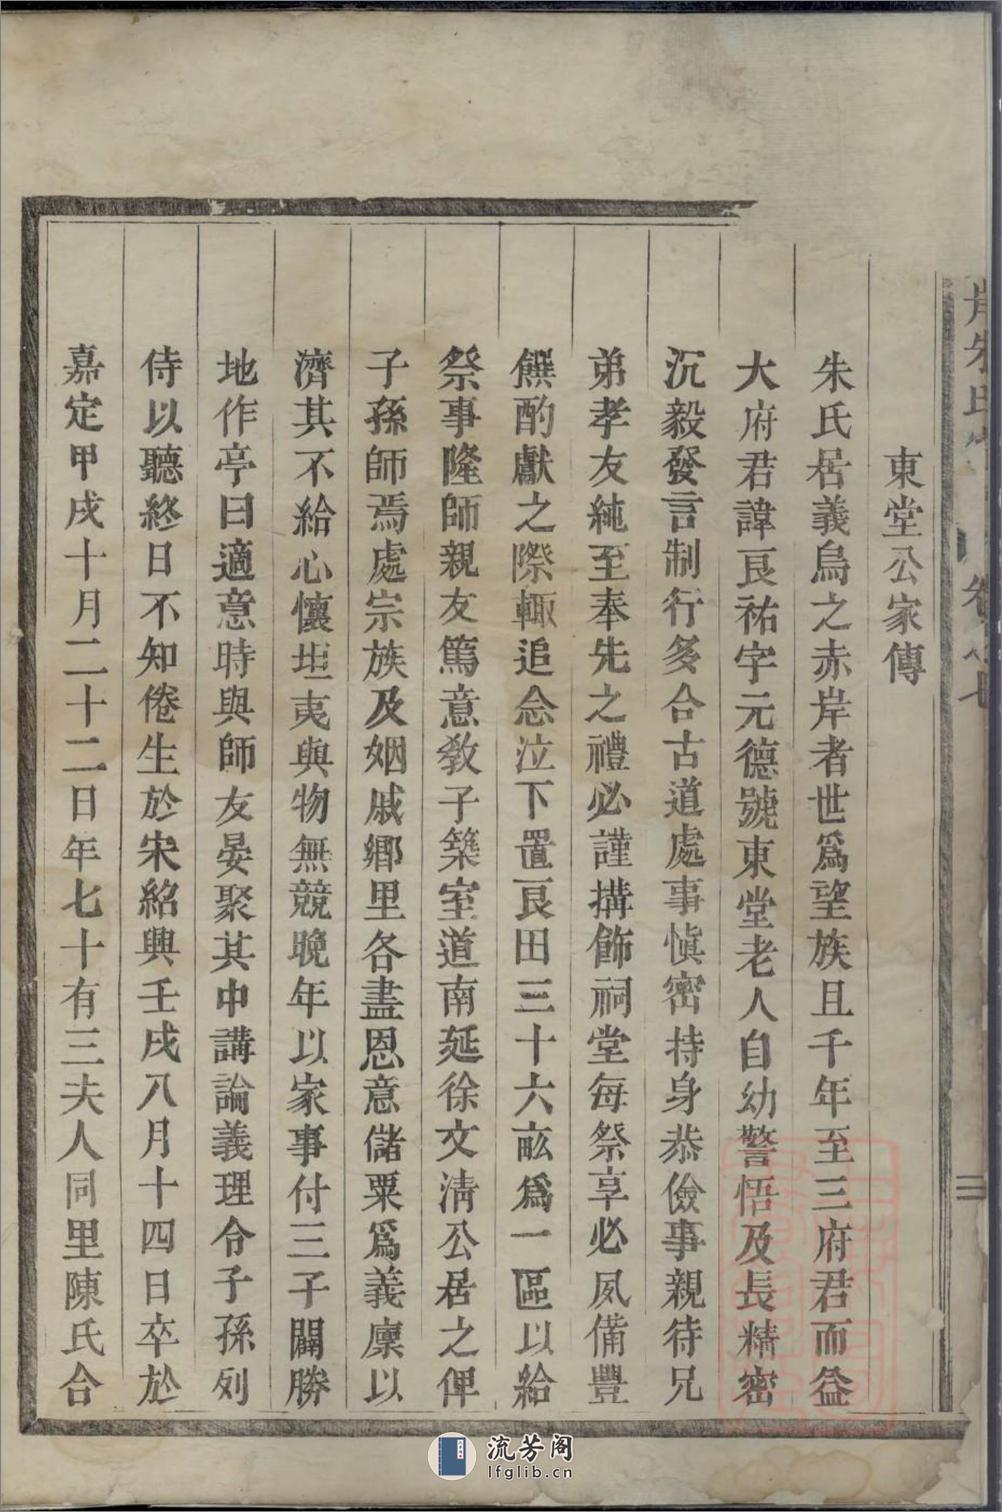 東堂公家傳
朱氏居義烏之赤岸者世爲望族且千年至三府君而益
大府君諱良祐字元德號東堂老人自幼警悟及長精密
沉毅發言制行多合古道處事愼密持身恭儉事親待兄
弟孝友純至奉先之禮必謹搆飾祠堂每祭享必夙備豐
饌酌獻之際輙追念泣下置良田三十六畝爲一區以給
祭事隆師親友篤意敎子築室道南延徐文淸公居之俾
子孫師焉處宗族及姻戚鄉里各盡恩意儲粟爲義廩以
濟其不給心懷坦夷與物無競晚年以家事付三子闢勝
地作亭曰適意時與師友晏聚其中講論義理令子孫列
侍以聽終日不知倦生於宋紹興壬戌八月十四日卒於
嘉定甲戌十月二十二日年七十有三夫人同里陳氏合
流芳阁
lfglib.cn